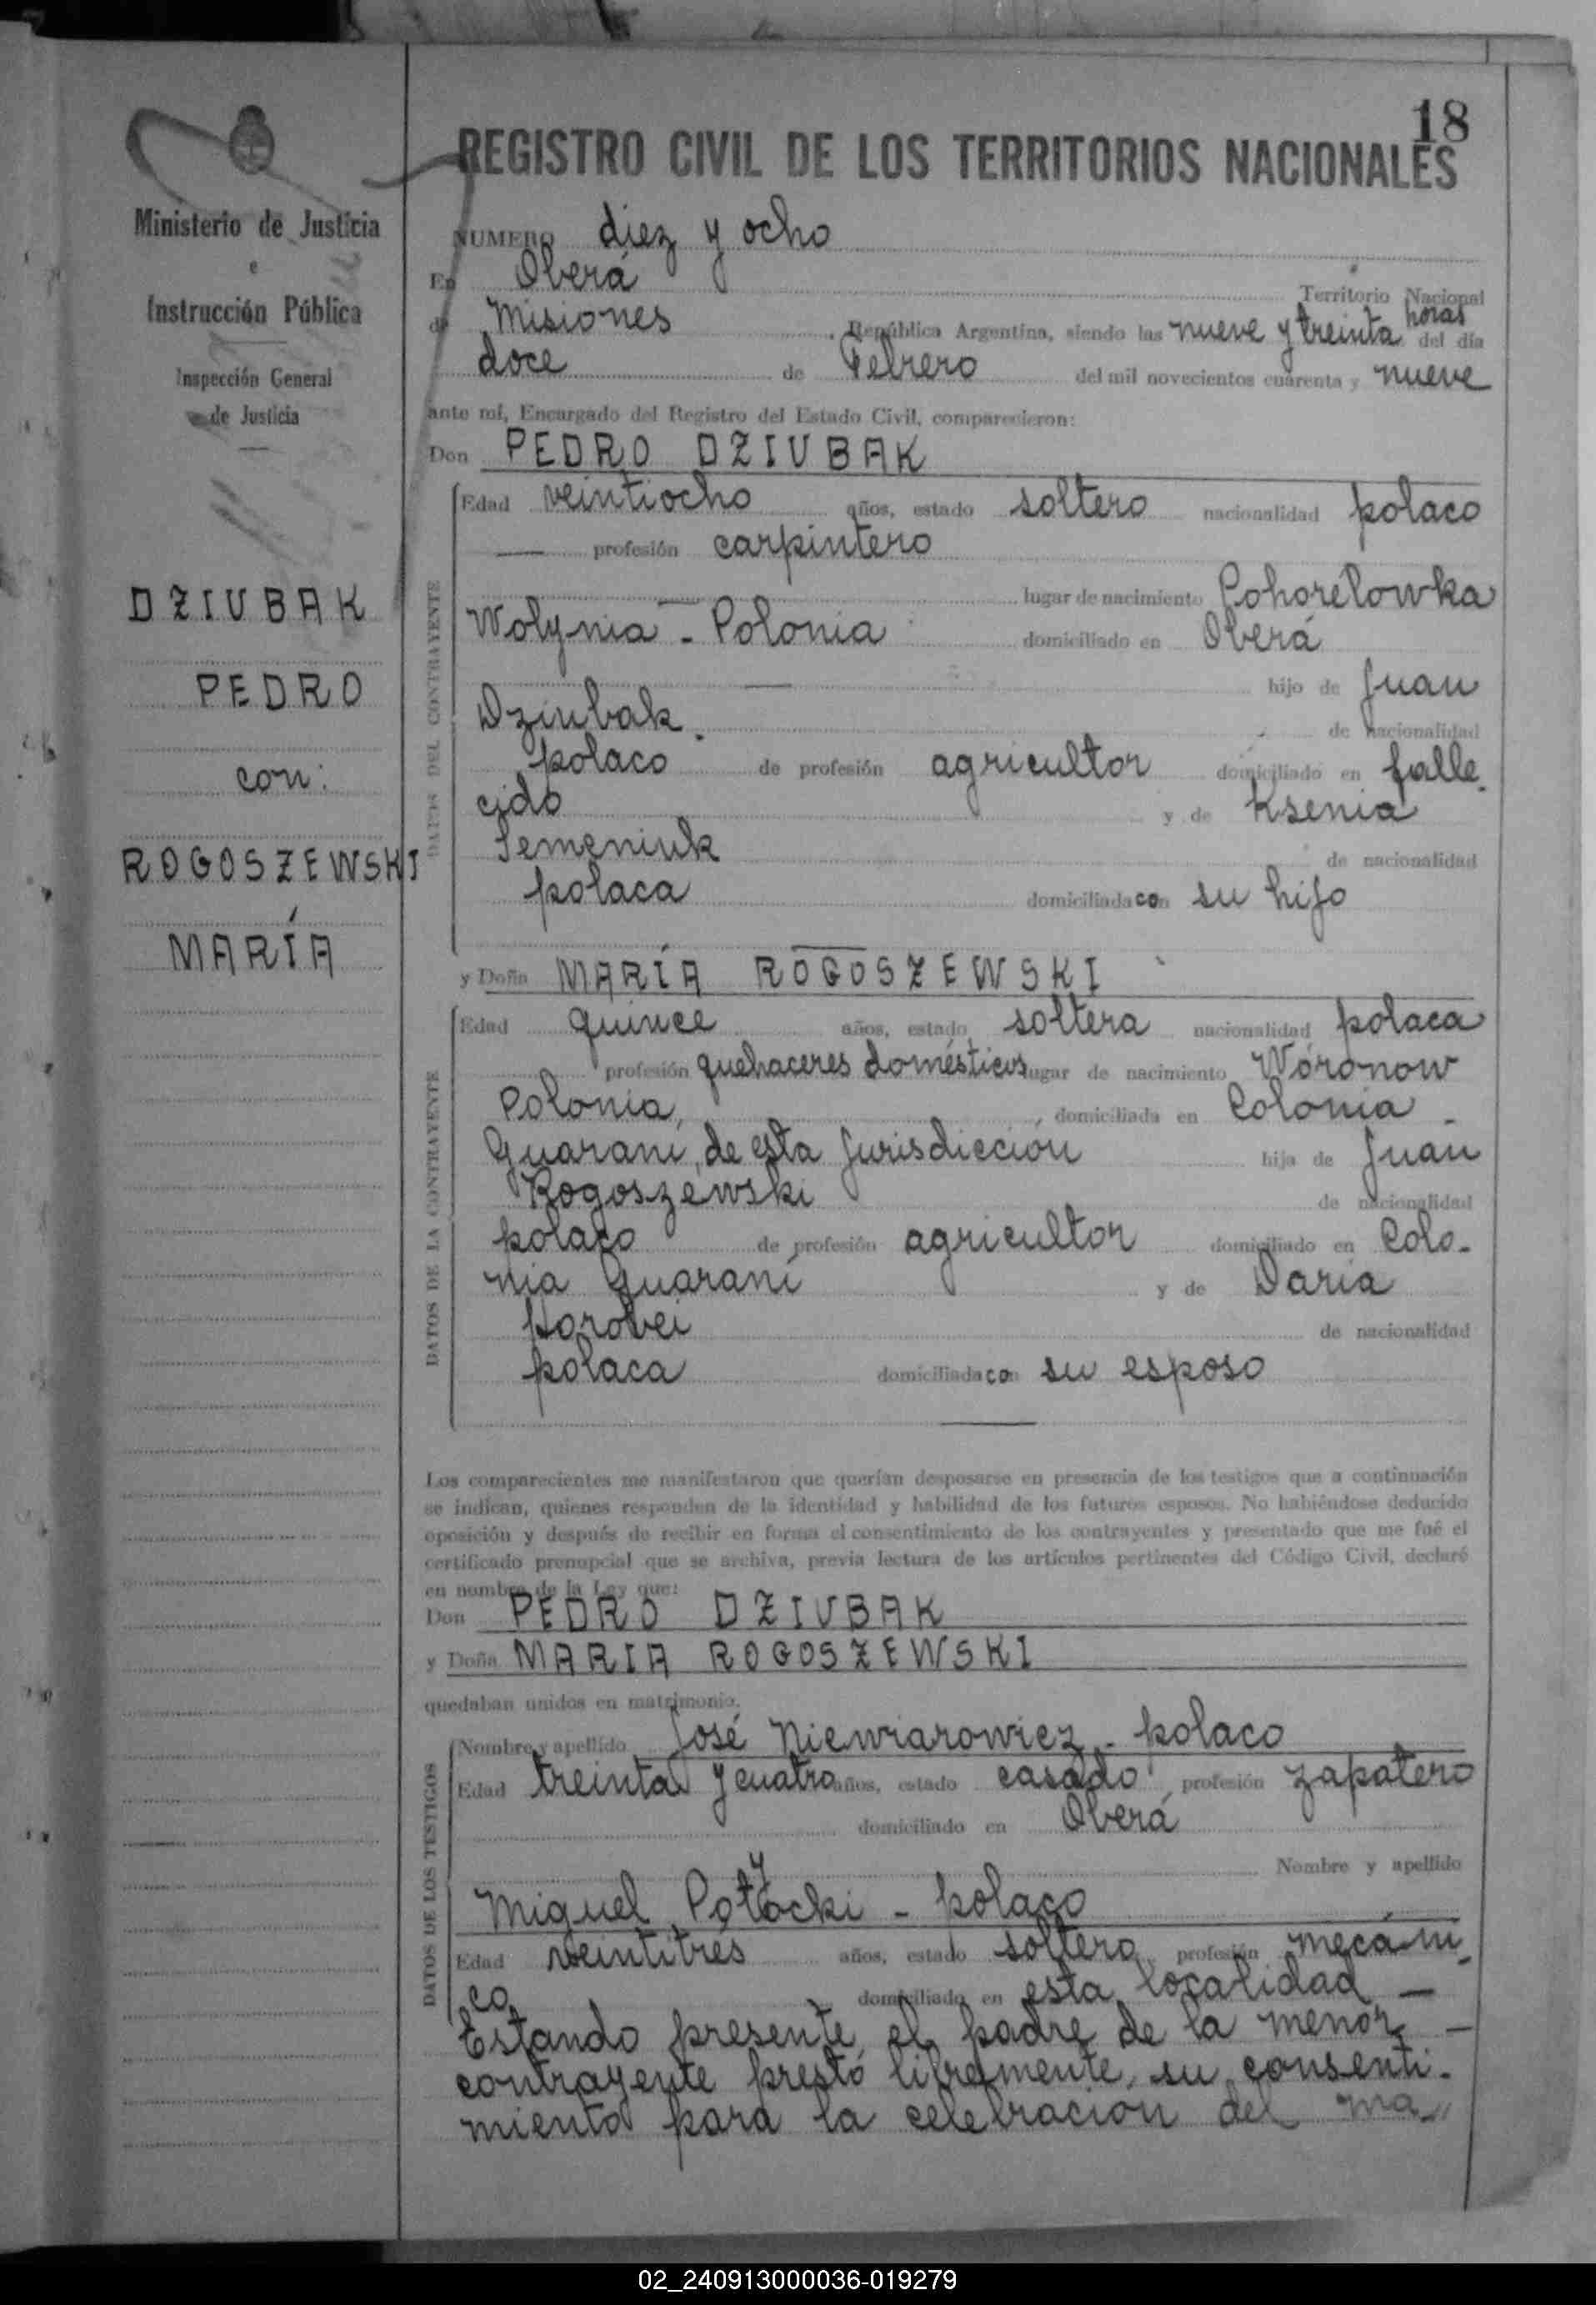 18
REGISTRO CIVIL DE LOS TERRITORIOS NACIONALES
Ministerio de Justicia
e
Instrucción Pública
Inspección General
de Justicia
DZIUBAK
PEDRO
con:
ROGOSZEWSKI
MARÍA
NUMERO diez y ocho
En Oberá Territorio Nacional
de Misiones, República Argentina, siendo las nueve y treinta horas del día
doce de Febrero del mil novecientos cuarenta y nueve
ante mí, Encargado del Registro del Estado Civil, comparecieron:
Don PEDRO DZIUBAK
DATOS DEL CONTRAYENTE
Edad veintiocho años, estado soltero nacionalidad polaco
— profesión carpintero
lugar de nacimiento Pohorelowka
Wolynia - Polonia domiciliado en Oberá
— hijo de Juan
Dziubak de nacionalidad
polaco de profesión agricultor domiciliado en falle-
cido y de Ksenia
Semeniuk de nacionalidad
polaca domiciliada con su hijo
y Doña MARÍA ROGOSZEWSKI
DATOS DE LA CONTRAYENTE
Edad quince años, estado soltera nacionalidad polaca
profesión quehaceres domésticos lugar de nacimiento Woronow
Polonia, domiciliada en Colonia
Guaraní, de esta jurisdicción hija de Juan
Rogoszewski de nacionalidad
polaco de profesión agricultor domiciliado en Colo-
nia Guaraní y de Daria
Horobei de nacionalidad
polaca domiciliada con su esposo
Los comparecientes me manifestaron que querían desposarse en presencia de los testigos que a continuación
se indican, quienes responden de la identidad y habilidad de los futuros esposos. No habiéndose deducido
oposición y después de recibir en forma el consentimiento de los contrayentes y presentado que me fué el
certificado prenupcial que se archiva, previa lectura de los artículos pertinentes del Código Civil, declaré
en nombre de la Ley que:
Don PEDRO DZIUBAK
y Doña MARIA ROGOSZEWSKI
quedaban unidos en matrimonio.
DATOS DE LOS TESTIGOS
Nombre y apellido José Niewiarowicz - polaco
Edad treinta y cuatro años, estado casado profesión zapatero
domiciliado en Oberá
Nombre y apellido
Miguel Potocki - polaco
Edad veintitrés años, estado soltero profesión mecáni-
co domiciliado en esta localidad —
Estando presente el padre de la menor —
contrayente prestó libremente su consenti-
miento para la celebración del ma-
02_240913000036-019279